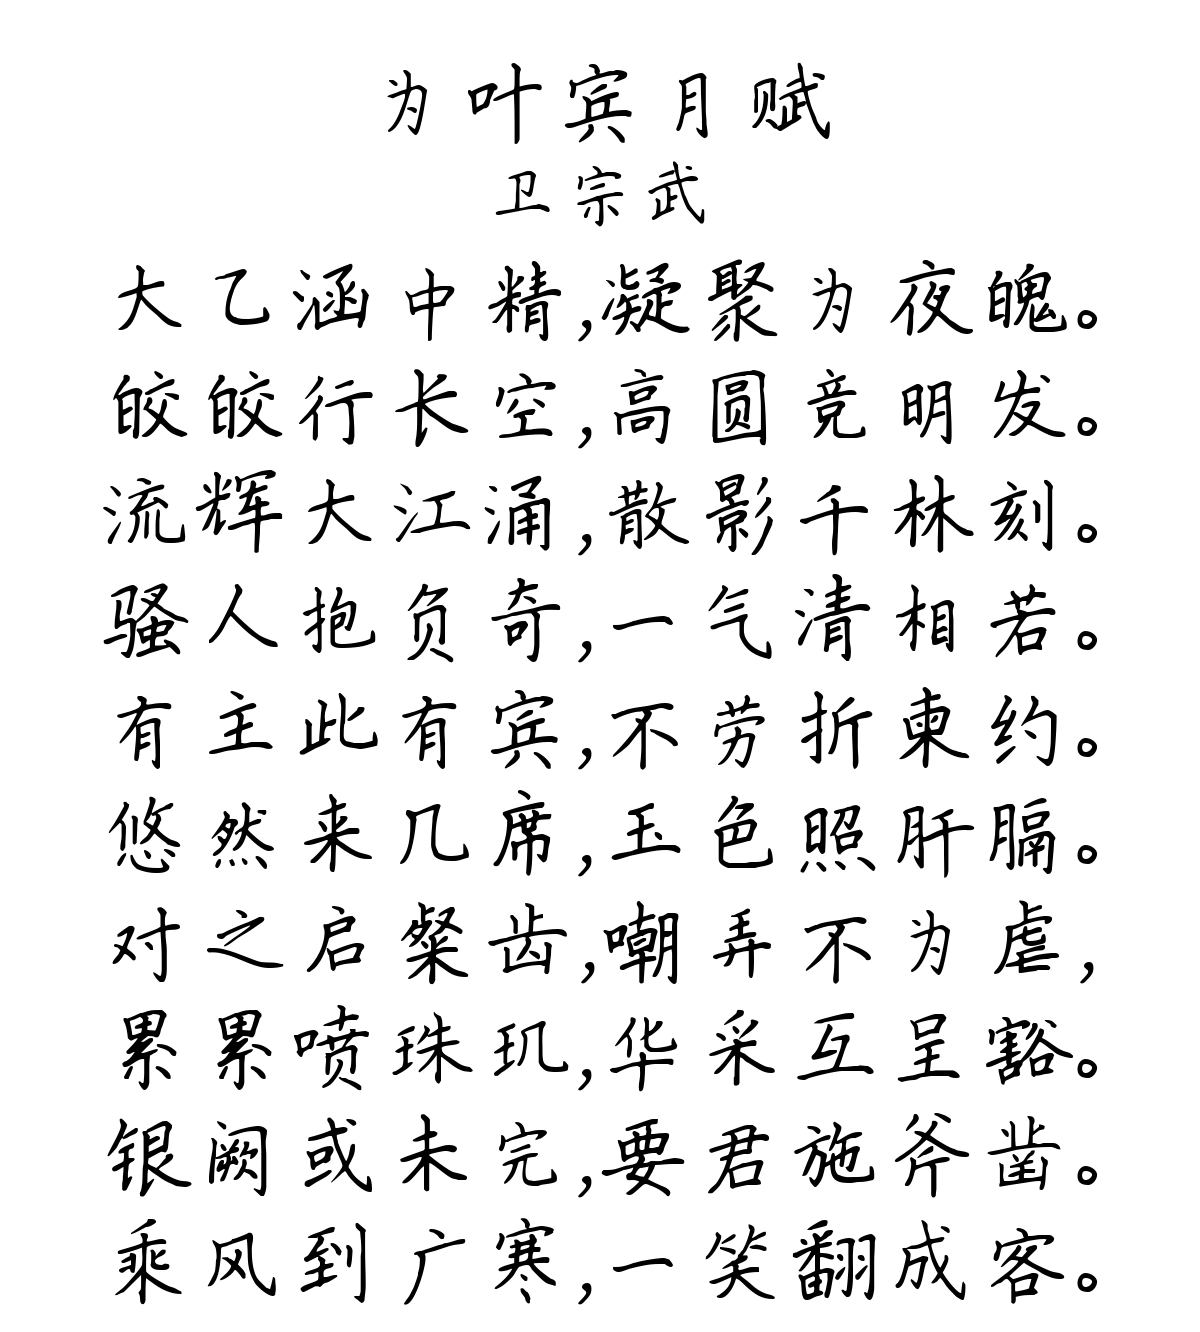 为叶宾月赋
卫宗武
大乙涵中精,凝聚为夜魄。
皎皎行长空,高圆竞明发。
流辉大江涌,散影千林刻。
骚人抱负奇,一气清相若。
有主此有宾,不劳折柬约。
悠然来几席,玉色照肝膈。
对之启粲齿,嘲弄不为虐,
累累喷珠玑,华采互呈豁。
银阙或未完,要君施斧凿。
乘风到广寒,一笑翻成客。